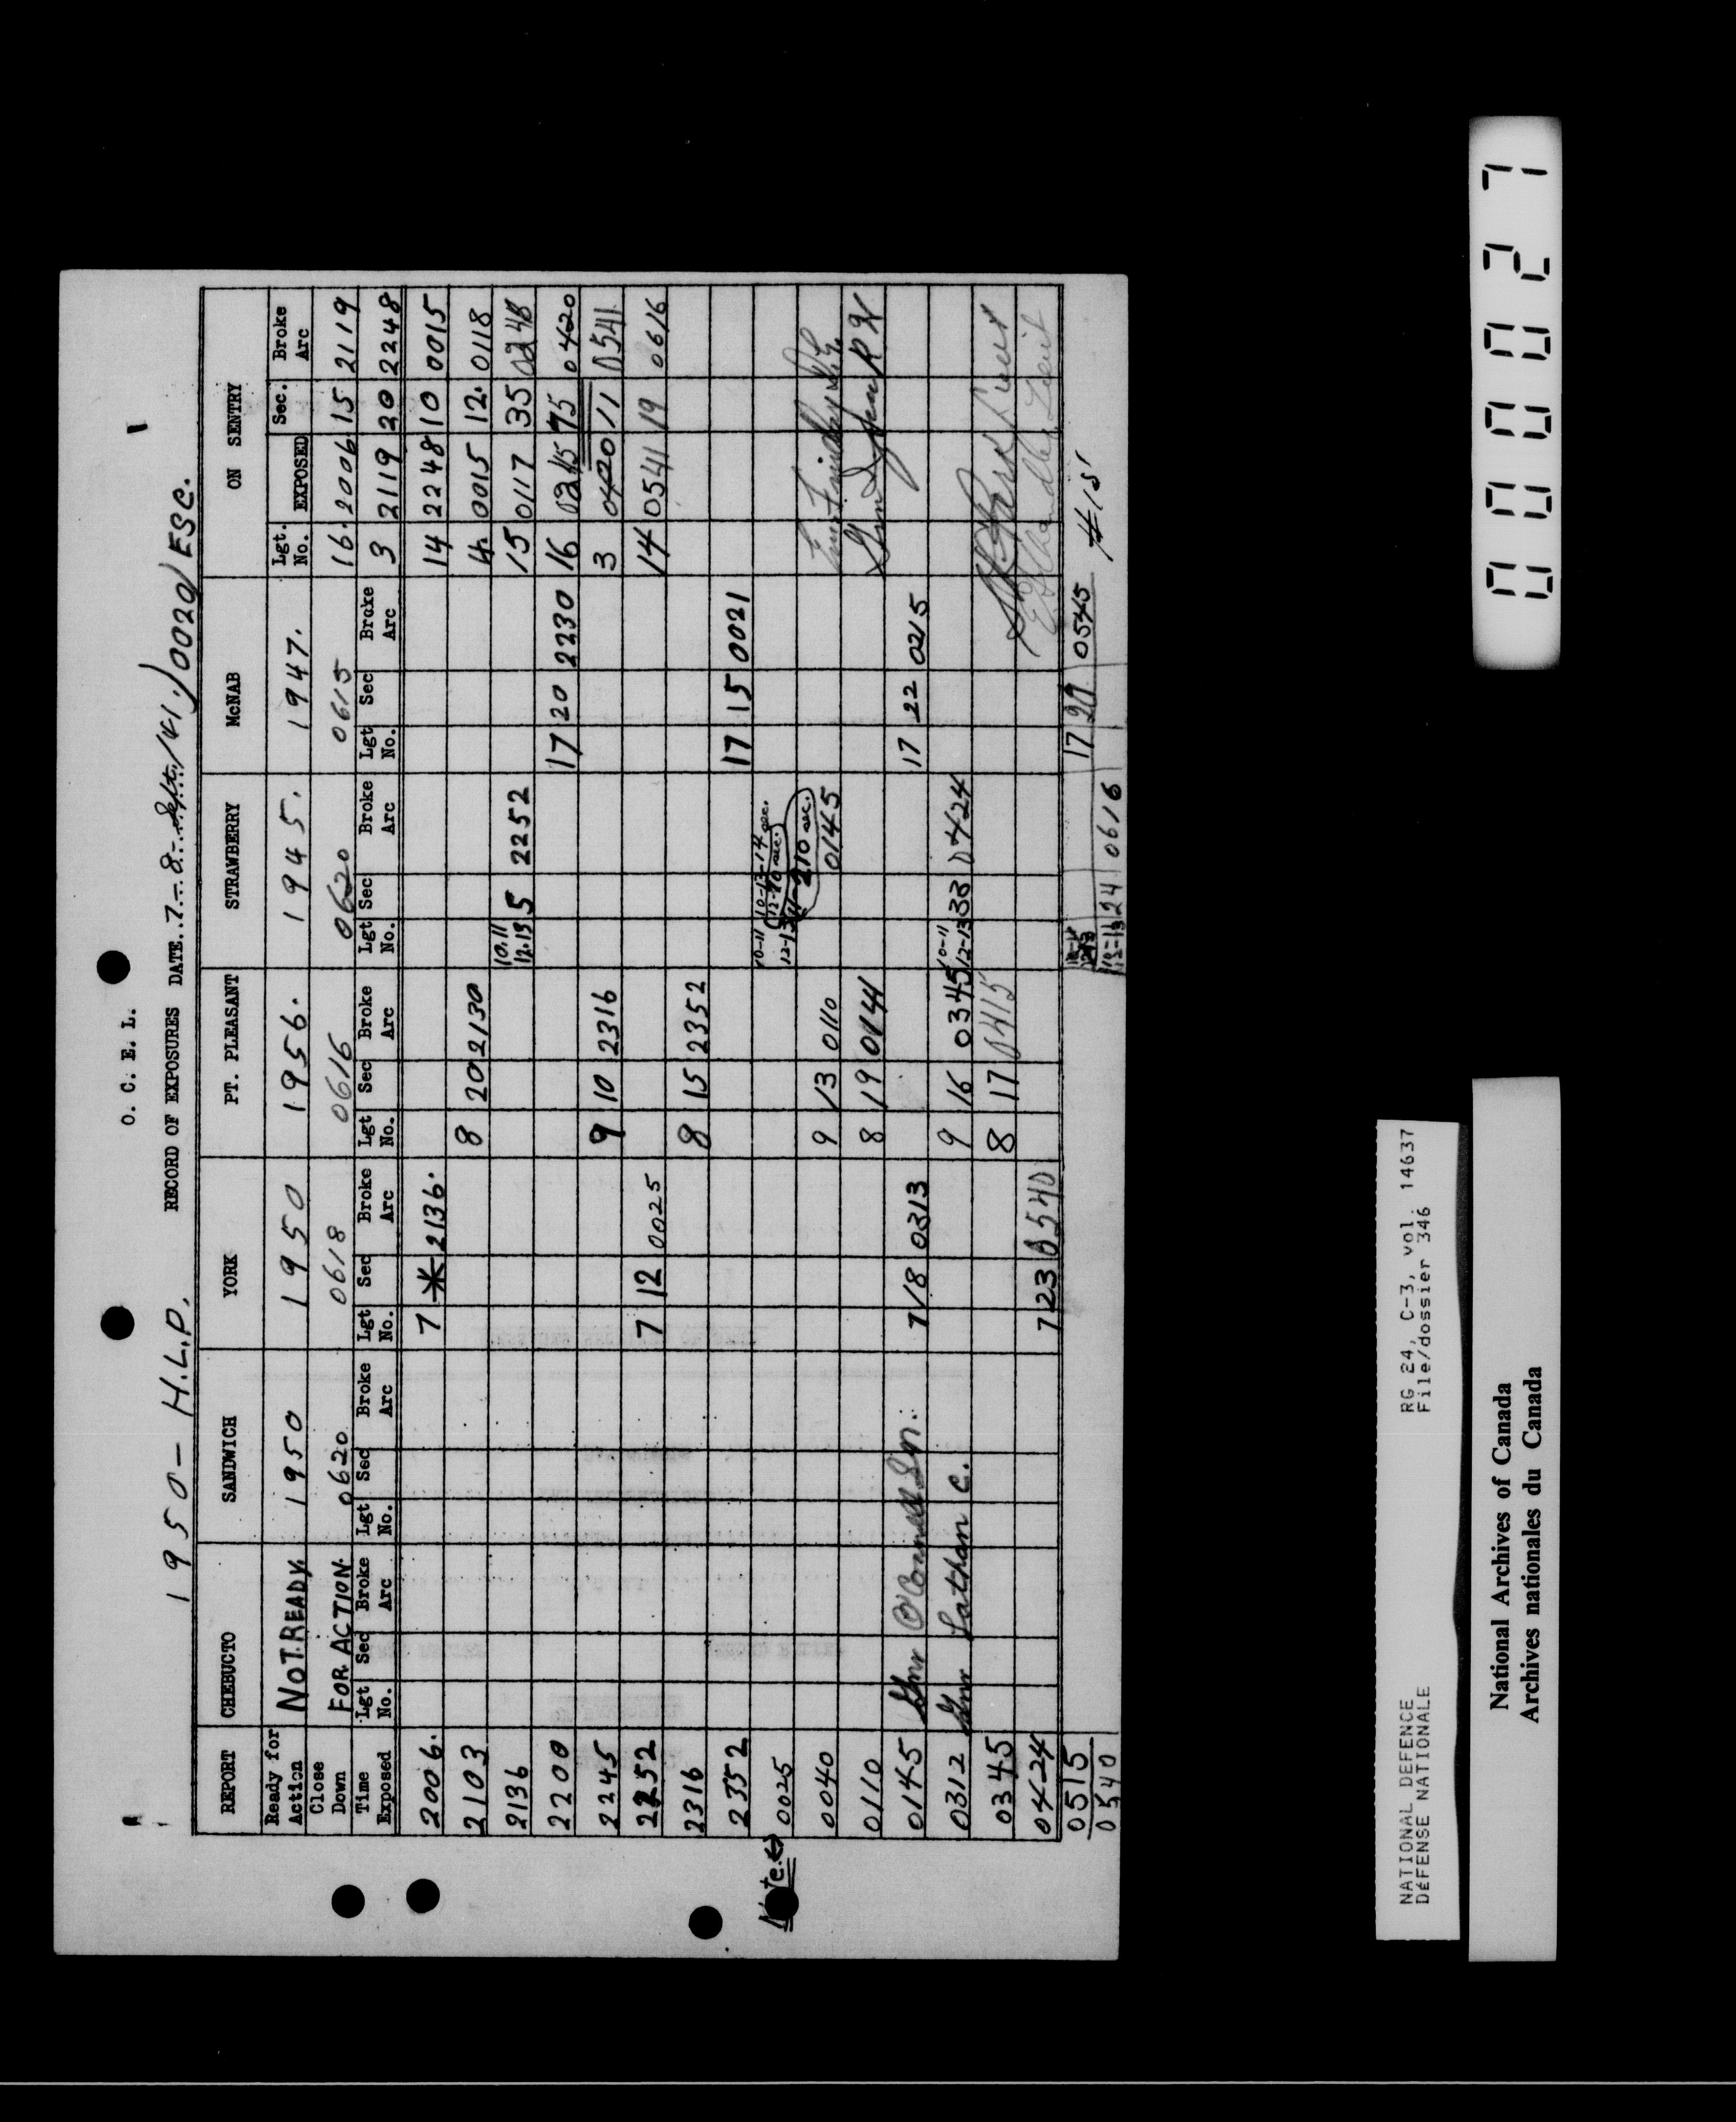 O. C. E. L.
1950 - H.L.P. RECORD OF EXPOSURES DATE..7.-8.-Sept./41./ 0020/ESC.
REPORT CHEBUCTO SANDWICH YORK PT. PLEASANT STRAWBERRY McNAB ON SENTRY
Ready for Action NOT.READY. 1950 1950 1956. 1945. 1947. Lgt. No. EXPOSED Sec. Broke Arc
Close Down FOR ACTION. 0620 0618 0616 0620 0615 16. 2006 15 2119
Time Exposed Lgt No. Sec Broke Arc Lgt No. Sec Broke Arc Lgt No. Sec Broke Arc Lgt No. Sec Broke Arc Lgt No. Sec Broke Arc Lgt No. Sec Broke Arc 3 2119 20 2248
2006. 7 * 2136. 14 2248 10 0015
2103 8 20 2130 4. 0015 12. 0118
2136 10.11 12.13 5 2252 15 0117 35 0248
2200 17 20 2230 16 0245 75 0420
2245 9 10 2316 3 0420 11 0541
2252 7 12 0025 14 0541 19 0616
2316 8 15 2352
2352 17 15 0021
Note 0025 10-11 12-13 10-13-14 sec. 11-210 sec.
0040 9 13 0110 0145
0110 8 19 0144
0145 Gnr O'Connell 7 18 0313 17 22 0215
0312 Gnr Lathan C. 9 16 0345 10-11 12-13 33 0424
0345 8 17 0415 Lieut
0424 7 23 0540 Lieut
0515 17 20 0545 #15
0540 10-11 12-13 24 0616
NATIONAL DEFENCE RG 24, C-3, vol. 14637
DÉFENSE NATIONALE File/dossier 346
National Archives of Canada
Archives nationales du Canada
00027